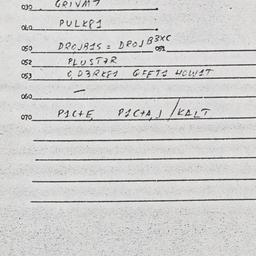 030 GRIVM7
040 PULK81
050 DROJB15 = DROJB3XC
051
052 PLUST7R
053 C,D3RK81 GFFT1 HOW1T
060 —
070 P1C+E, P1C+A,J /KALT